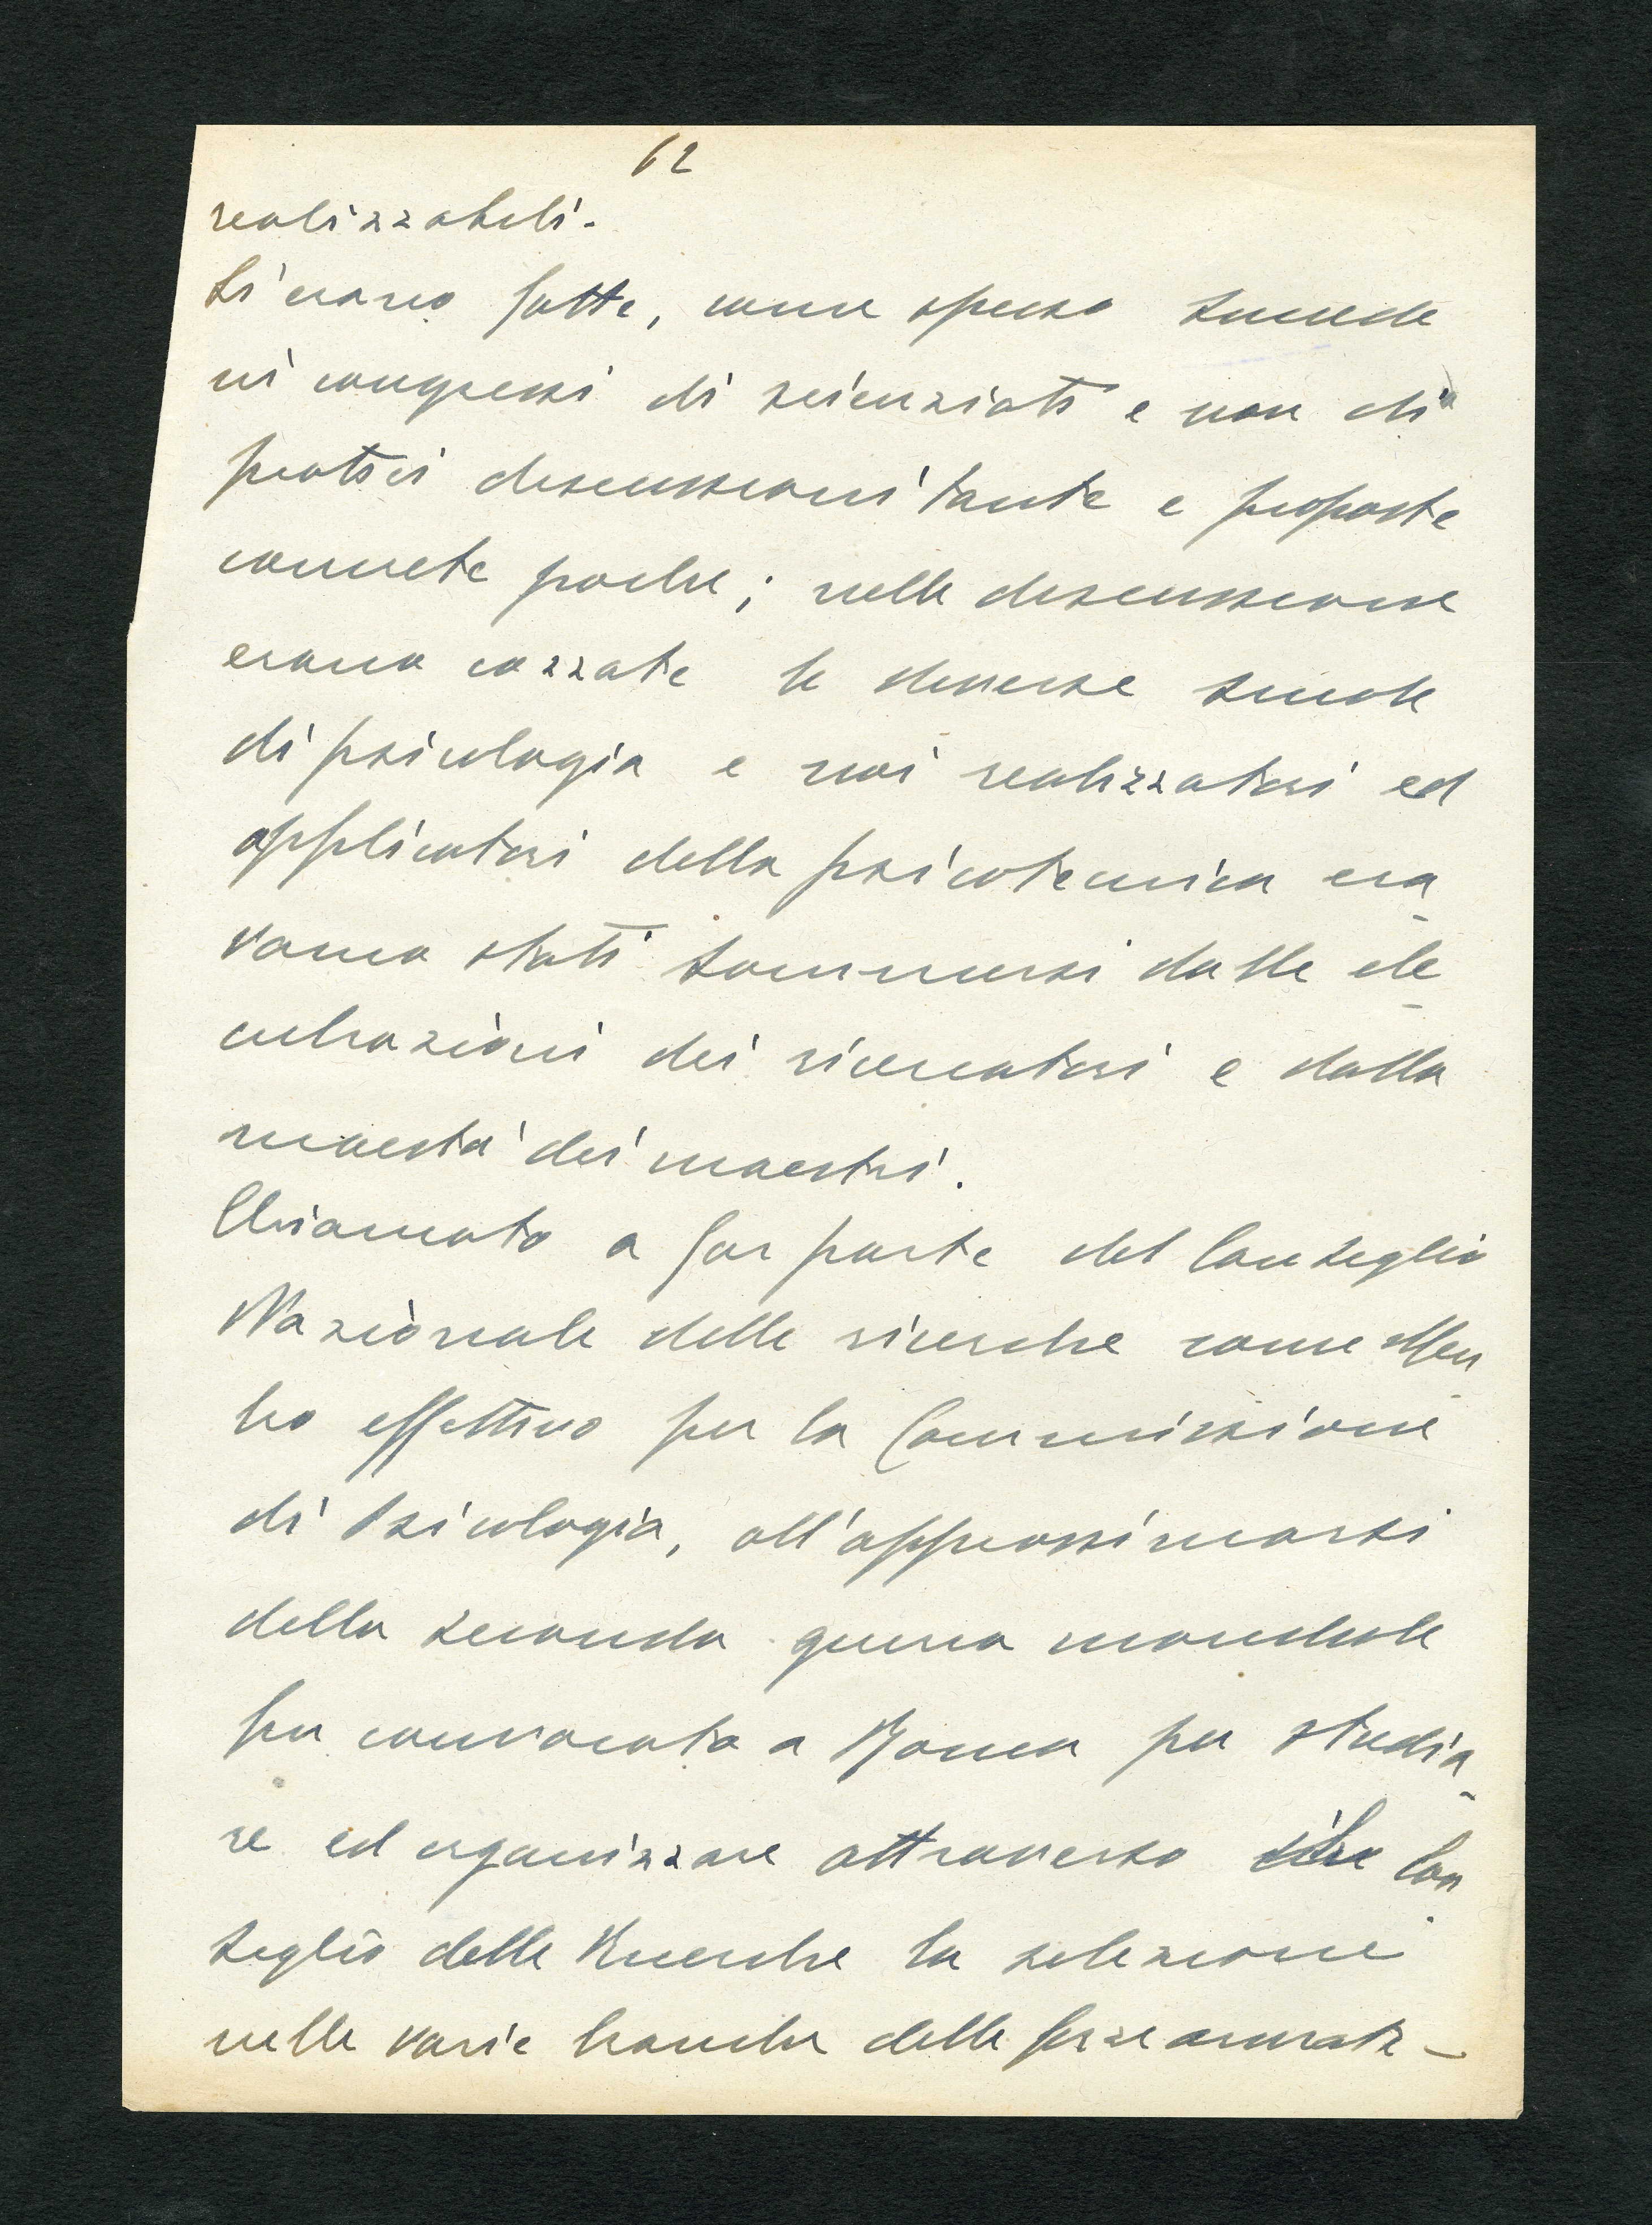 62
realizzabili.
Si erano fatte, come spesso succede
ni congressi di scienziati e non di
pratici discussioni tante e proposte
concrete poche; nelle discussione
erano cozzate le diverse scuole
di psicologia e noi realizzatori ed
applicatori della psicotecnica era
vamo stati sommersi dalle ele
cubrazioni dei ricercatori e dalla
maestà dei maestri.
Chiamato a far parte del Consiglio
Nazionale delle ricerche come Mem
bro effettivo per la Commissione
di Psicologia, all'approssimarsi
della seconda guerra mondiale
fui convocato a Roma per studia
re ed organizzare attraverso il Con
siglio delle Ricerche la selezione
nelle varie branche delle forze armate -